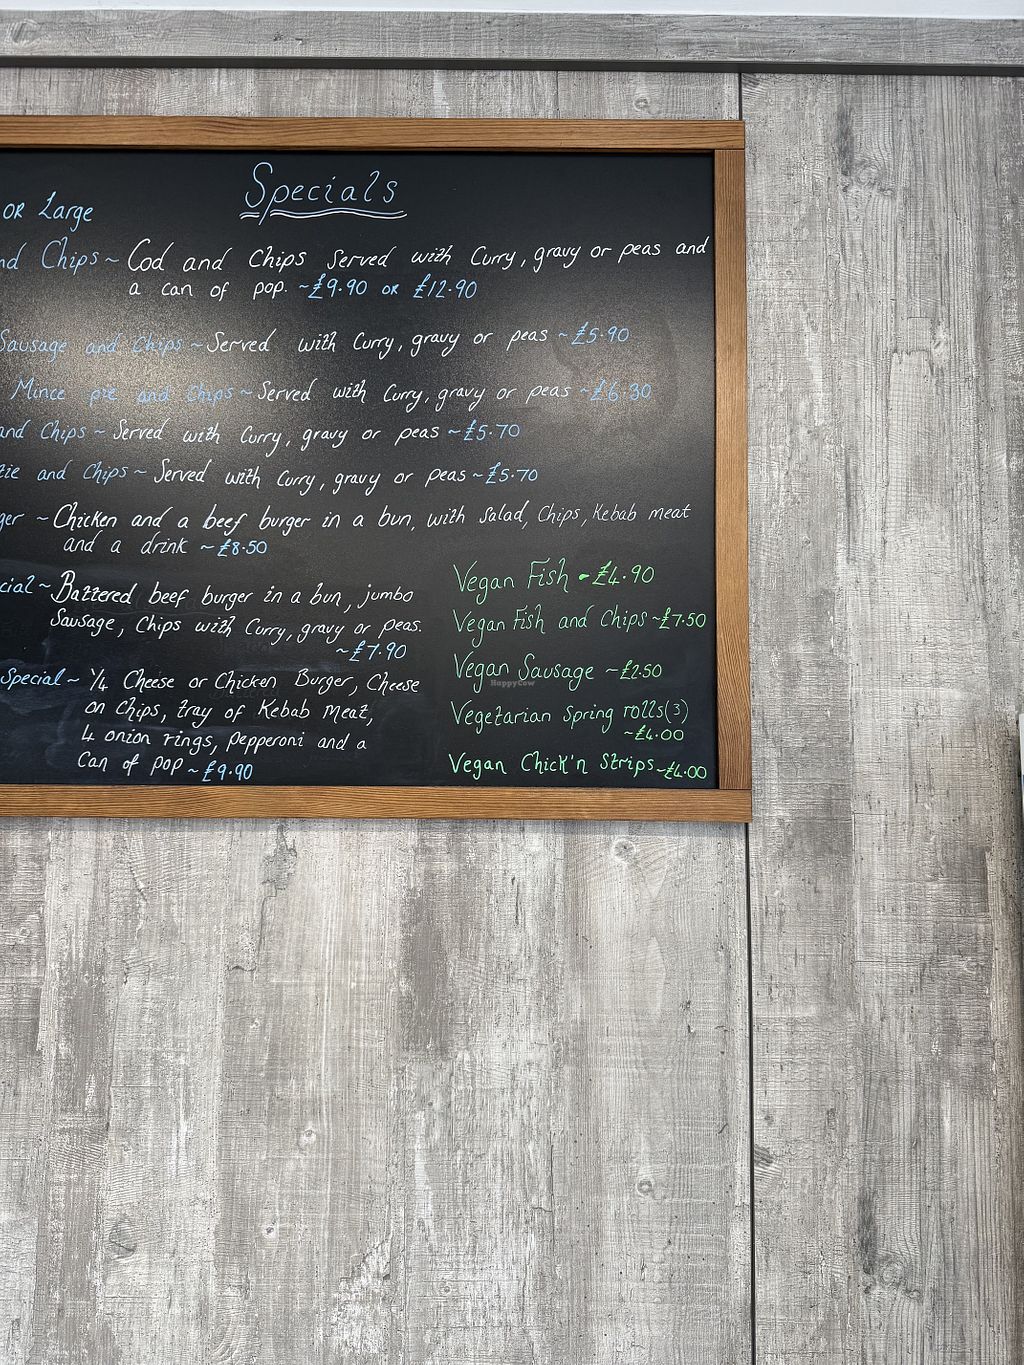 Specials
OR Large
nd Chips ~ Cod and Chips Served with Curry, gravy or peas and
a can of pop. ~ £9.90 OR £12.90
Sausage and Chips ~ Served with Curry, gravy or peas ~ £5.90
Mince pie and Chips ~ Served with Curry, gravy or peas ~ £6.30
and Chips ~ Served with Curry, gravy or peas ~ £5.70
tie and Chips ~ Served with Curry, gravy or peas ~ £5.70
ger ~ Chicken and a beef burger in a bun, with Salad, Chips, Kebab meat
and a drink ~ £8.50
cial ~ Battered beef burger in a bun, jumbo
Sausage, Chips with Curry, gravy or peas.
~ £7.90
Special ~ 1/4 Cheese or Chicken Burger, Cheese
on Chips, tray of Kebab Meat,
4 onion rings, Pepperoni and a
Can of pop ~ £9.90
Vegan Fish - £4.90
Vegan Fish and Chips ~ £7.50
Vegan Sausage ~ £2.50
HappyCow
Vegetarian Spring rolls (3)
~ £4.00
Vegan Chick'n Strips ~ £4.00